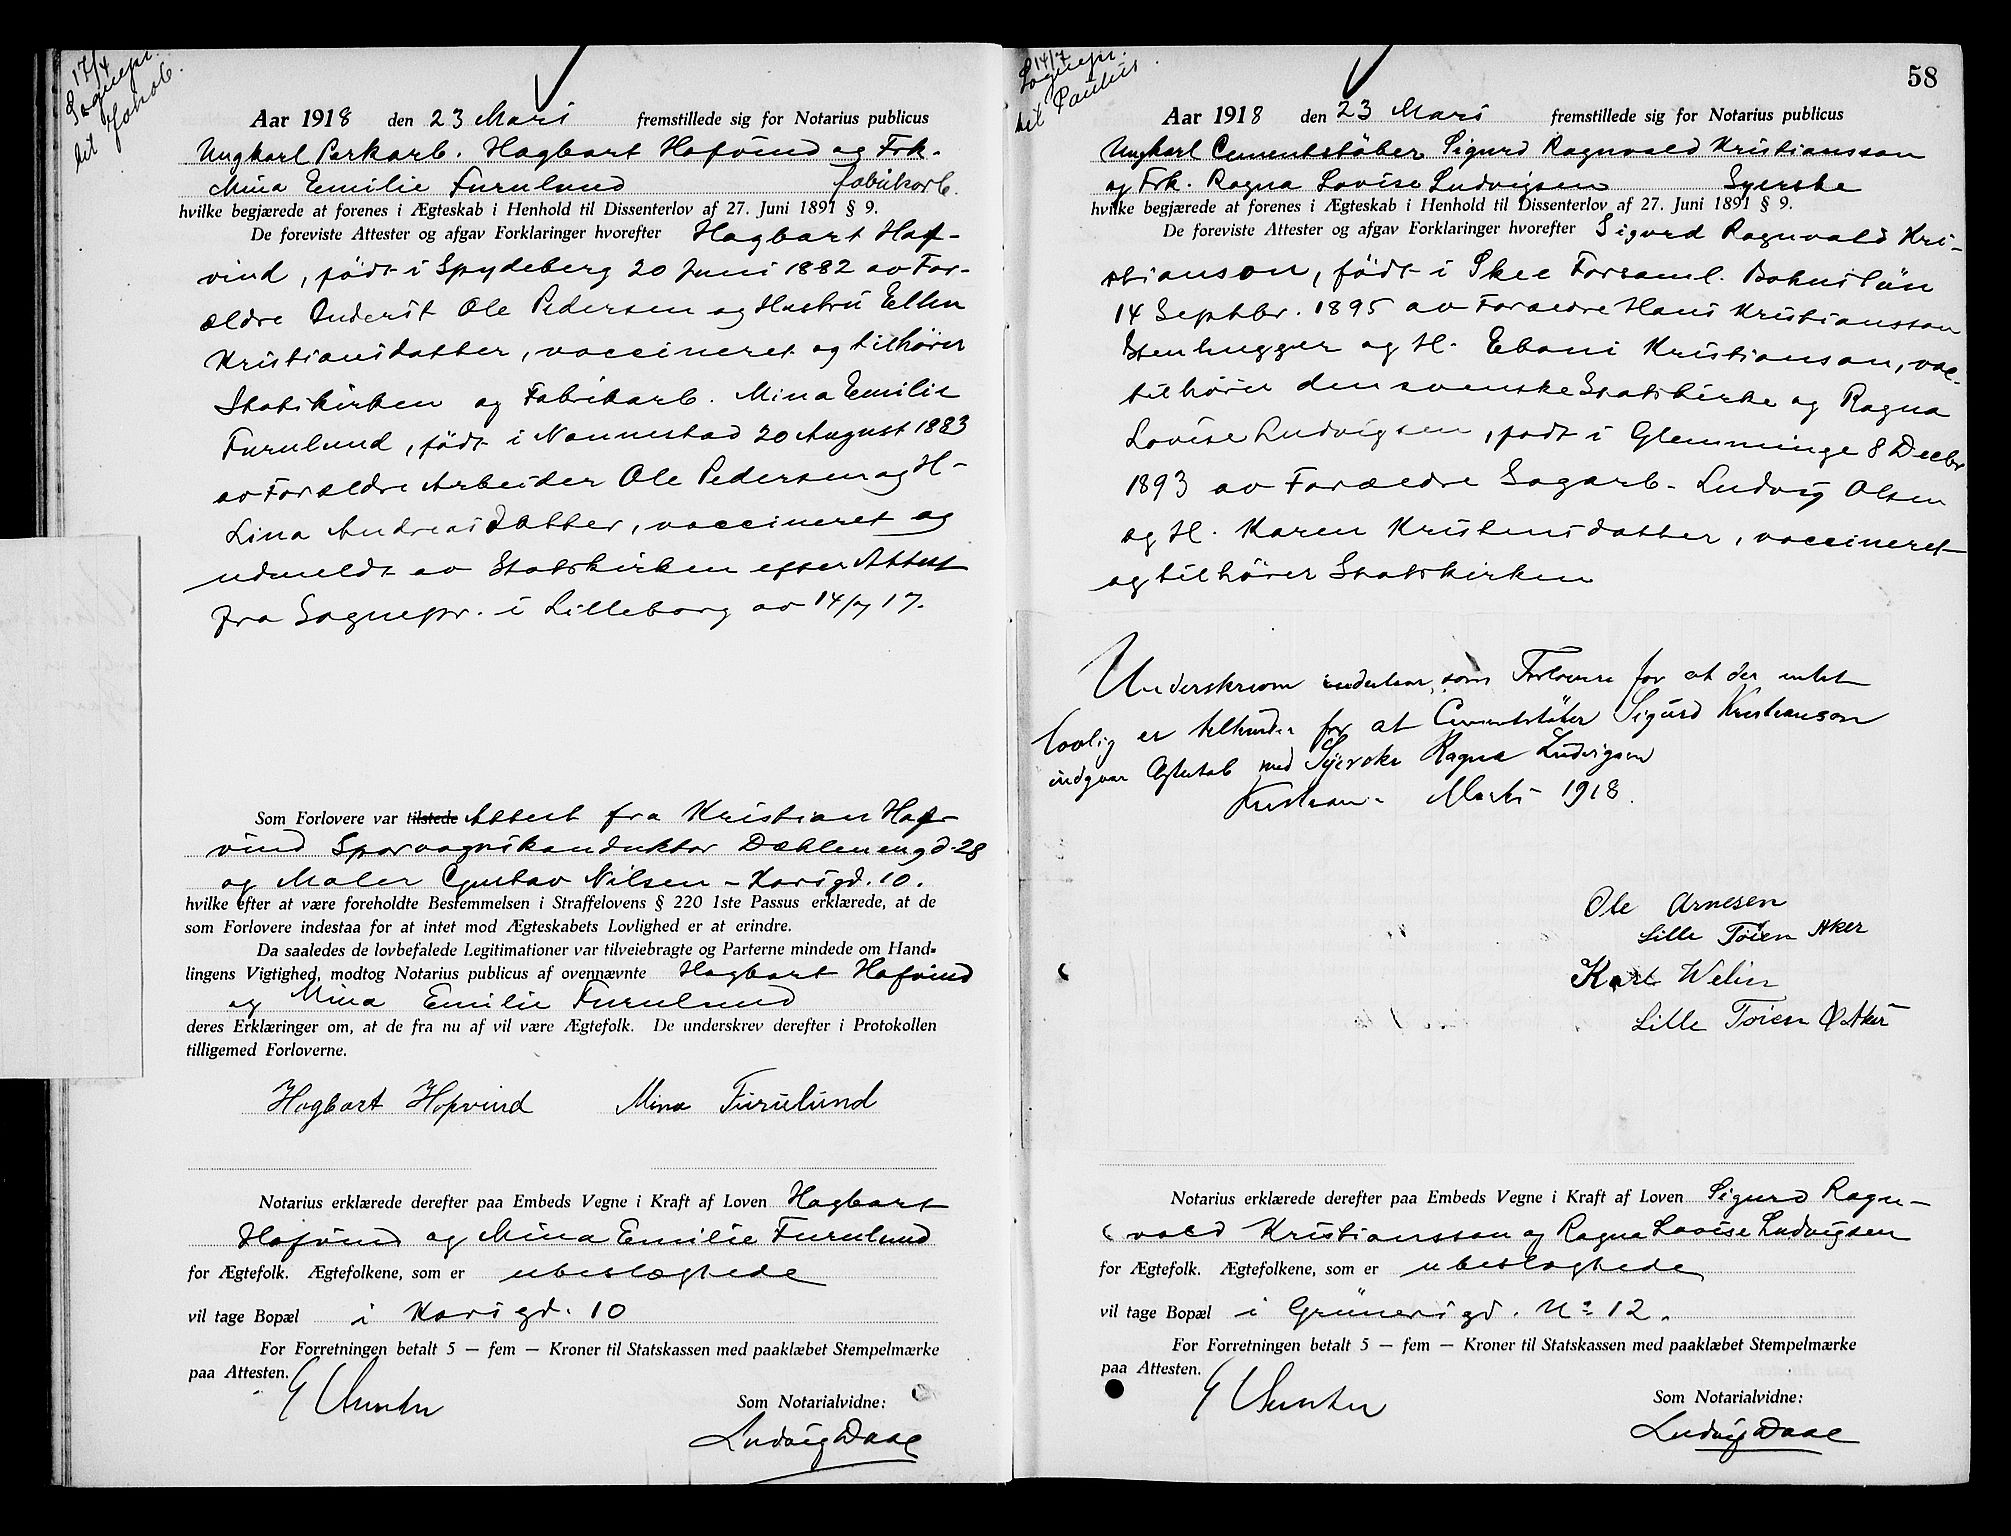 17/4
Sognepr.
til Jakob.
Aar 1918 den 23 Mars fremstillede sig for Notarius publicus
Ungkarl Parkarb. Hagbart Hofvind og Frk.
Mina Emilie Furulund fabrikarb.
hvilke begjærede at forenes i Ægteskab i Henhold til Dissenterlov af 27. Juni 1891 § 9.
De foreviste Attester og afgav Forklaringer hvorefter Hagbart Hof-
vind, født i Spydeberg 20 Juni 1882 av For-
ældre Inderst Ole Pedersen og Hustru Ellen
Kristiansdatter, vaccineret og tilhører
Statskirken og Fabrikarb. Mina Emilie
Furulund, født i Nannestad 20 August 1883
av Forældre Arbeider Ole Pedersen og H-
Lina Andreasdatter, vaccineret og
udmeldt av Statskirken efter Attest
fra Sognepr. i Lilleborg av 14/7 17.
Som Forlovere var tilstede Attest fra Kristian Hof-
vind Sporvognskonduktør Dælenengd. 28
og Maler Gustav Nilsen - Karisgd. 10.
hvilke efter at være foreholdte Bestemmelsen i Straffelovens § 220 1ste Passus erklærede, at de
som Forlovere indestaa for at intet mod Ægteskabets Lovlighed er at erindre.
Da saaledes de lovbefalede Legitimationer var tilveiebragte og Parterne mindede om Hand-
lingens Vigtighed, modtog Notarius publicus af ovennævnte Hagbart Hofvind
og Mina Emilie Furulund
deres Erklæringer om, at de fra nu af vil være Ægtefolk. De underskrev derefter i Protokollen
tilligemed Forloverne.
Hagbart Hofvind Mina Furulund
Notarius erklærede derefter paa Embeds Vegne i Kraft af Loven Hagbart
Hofvind og Mina Emilie Furulund
for Ægtefolk. Ægtefolkene, som er ubeslægtede
vil tage Bopæl i Karisgd. 10
For Forretningen betalt 5 — fem — Kroner til Statskassen med paaklæbet Stempelmærke
paa Attesten.
Som Notarialvidne:
Ludvig Daae
14/7
Sognepr.
til Paulus
58
Aar 1918 den 23 Mars fremstillede sig for Notarius publicus
Ungkarl Cementstøber Sigurd Ragnvald Kristiansson
og Frk. Ragna Lovise Ludvigsen Syerske
hvilke begjærede at forenes i Ægteskab i Henhold til Dissenterlov af 27. Juni 1891 § 9.
De foreviste Attester og afgav Forklaringer hvorefter Sigurd Ragnvald Kri-
stianson, født i Skee Forsaml. Bohuslän
14 Septbr. 1895 av Forældre Hans Kristiansson
Stenhugger og H. Ebani Kristianson, vac-
tilhører den svenske Statskirke og Ragna
Lovise Ludvigsen, født i Glemminge 8 Decbr
1893 av Forældre Sagarb. Ludvig Olsen
og H. Karen Kristensdatter, vaccineret
og tilhører Statskirken
Underskreven indestaar som Forlovere for at der intet
lovlig er tilhinder for at Cementstøber Sigurd Kristianson
indgaar Ægteskab med Syerske Ragna Ludvigsen
Kristiania Marts 1918.
Ole Arnesen
Lille Tøien Aker
Karl Welin
Lille Tøien Ø Aker
Notarius erklærede derefter paa Embeds Vegne i Kraft af Loven Sigurd Ragn-
vald Kristiansson og Ragna Lovise Ludvigsen
for Ægtefolk. Ægtefolkene, som er ubeslægtede
vil tage Bopæl i Grünersgd. No 12.
For Forretningen betalt 5 — fem — Kroner til Statskassen med paaklæbet Stempelmærke
paa Attesten.
Som Notarialvidne:
Ludvig Daae